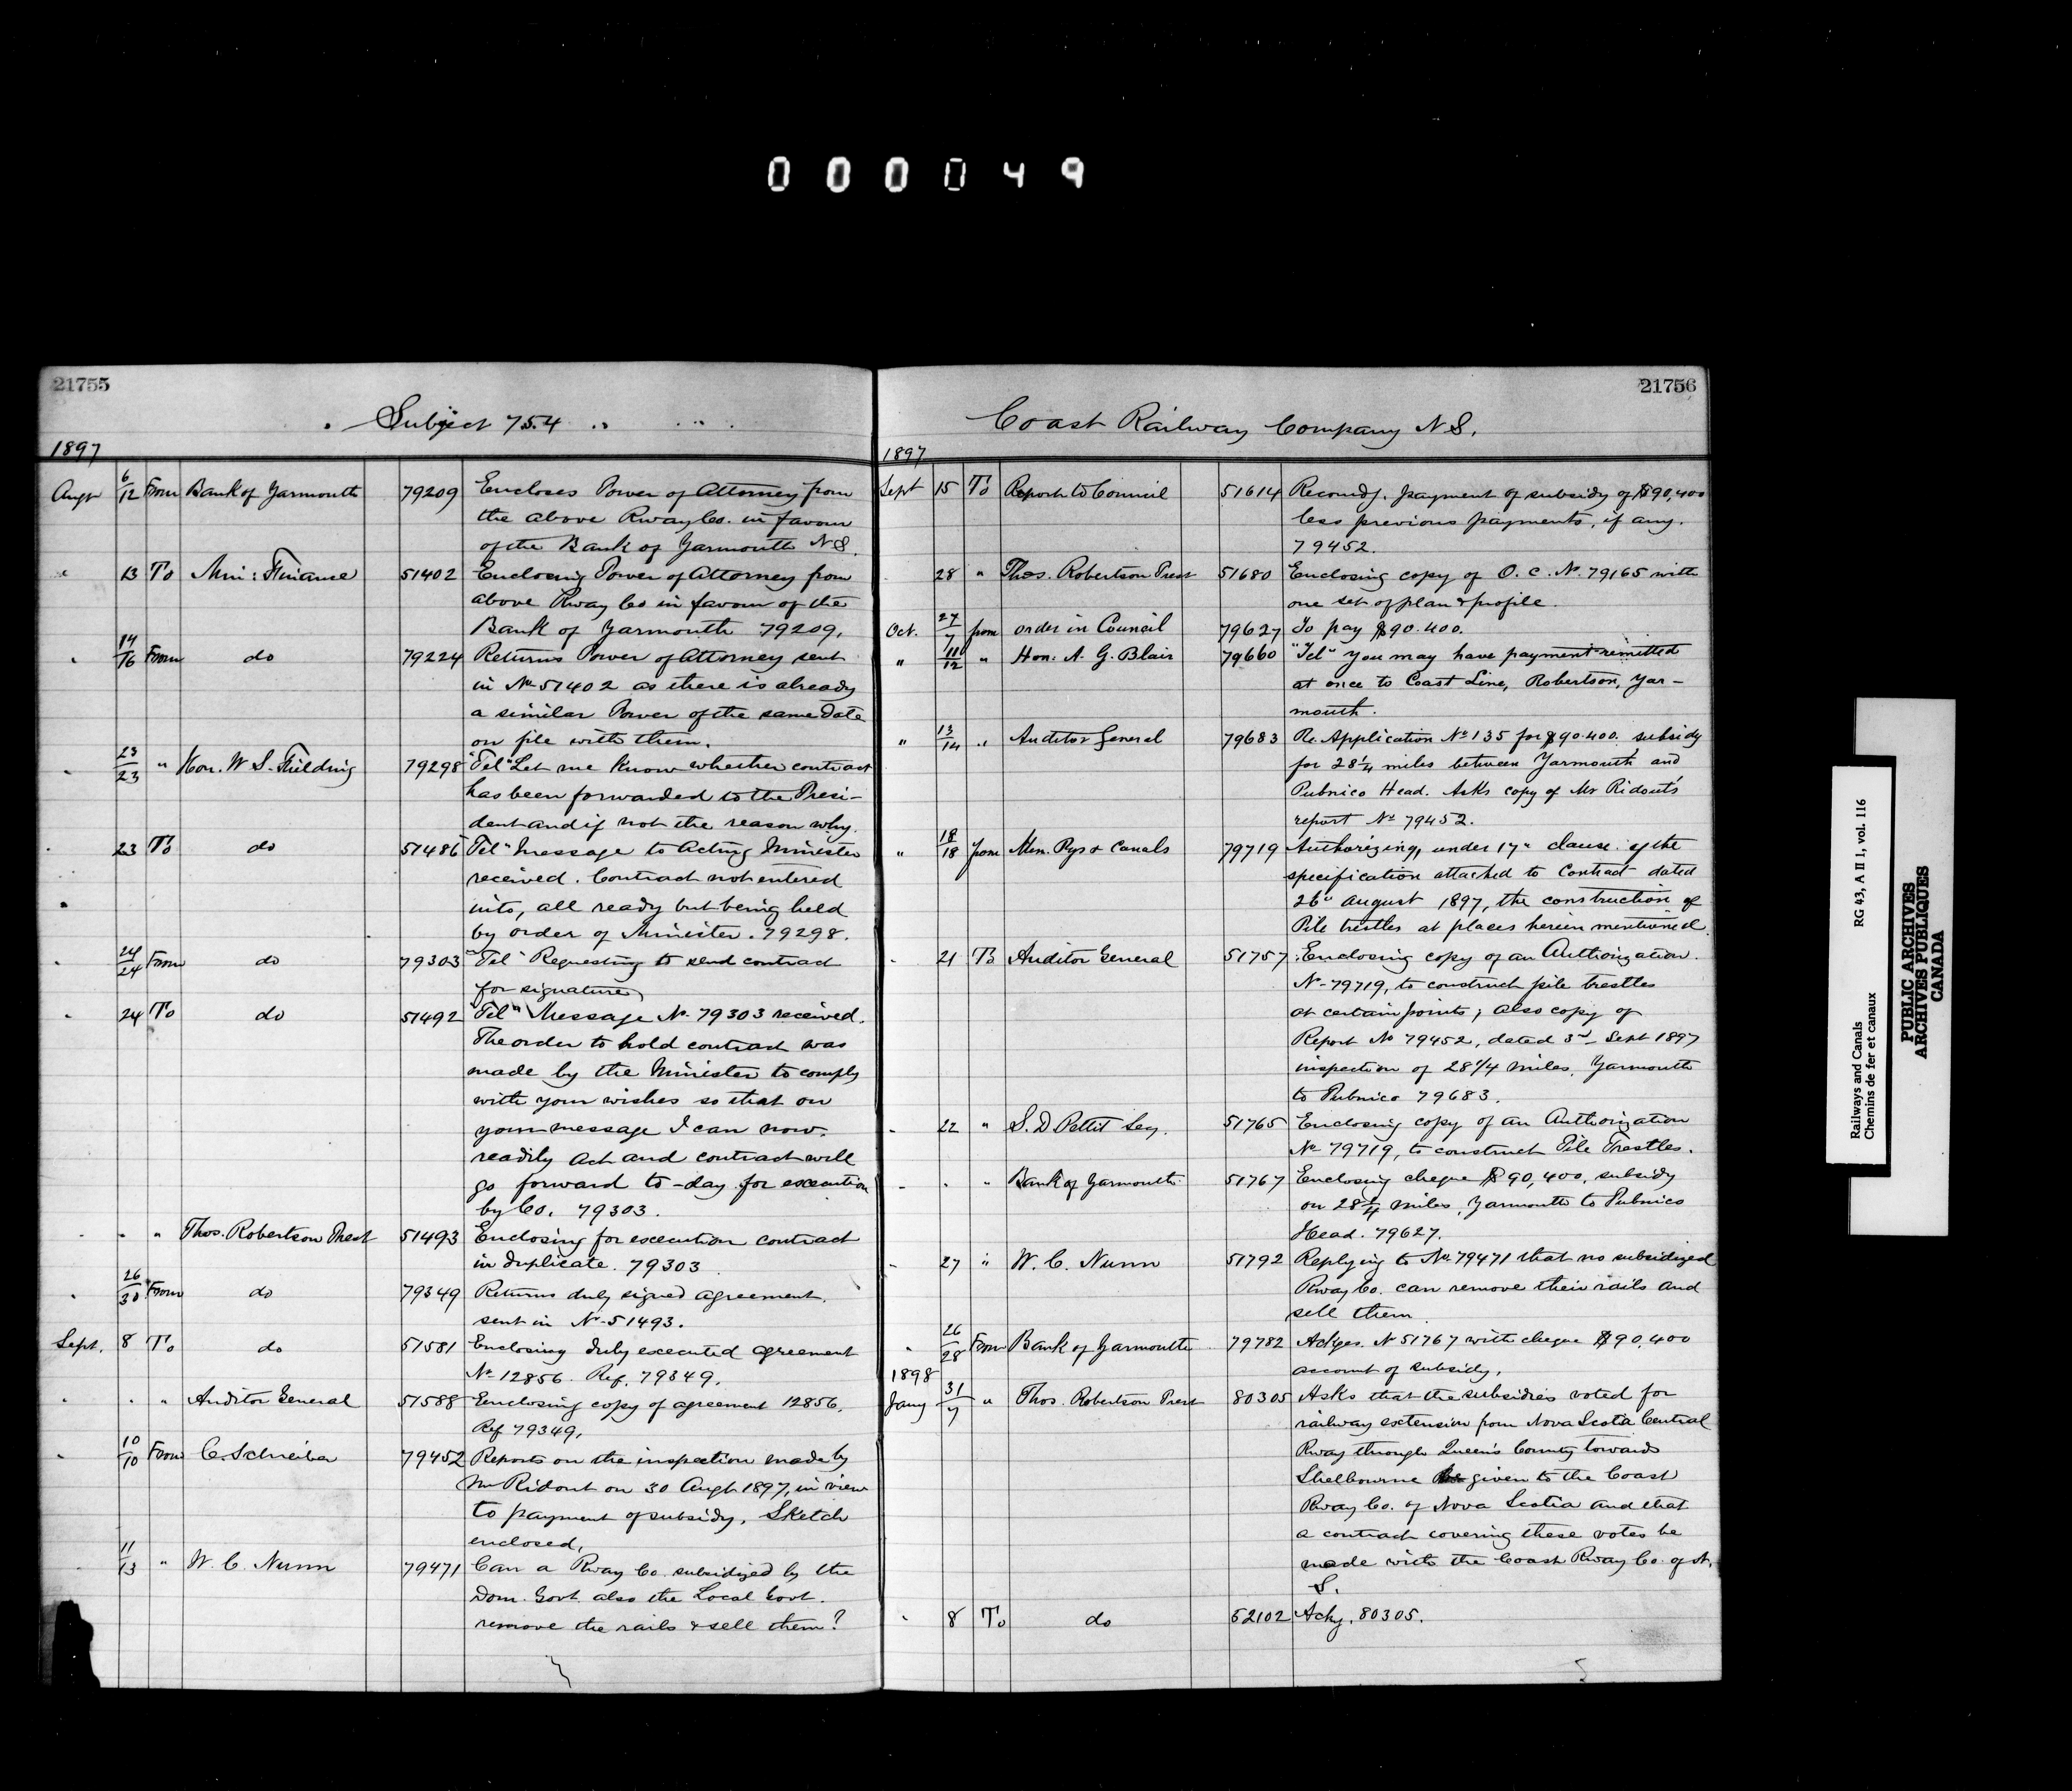 000049
21755
Subject 754
1897
Augt 6/12 From Bank of Yarmouth 79209 Encloses Power of Attorney from
the above Rway Co. in favour
of the Bank of Yarmouth N.S.
" 13 To Min: Finance 51402 Enclosing Power of Attorney from
above Rway Co in favour of the
Bank of Yarmouth 79209.
" 14/16 From do 79224 Returns Power of Attorney sent
in No 51402 as there is already
a similar Power of the same date
on file with them.
" 23/23 " Hon. W. S. Fielding 79298 "Tel" Let me know whether contract
has been forwarded to the Presi-
dent and if not the reason why.
" 23 To do 51486 "Tel" Message to Acting Minister
received. Contract not entered
into, all ready but being held
by order of Minister. 79298.
" 24/24 From do 79303 "Tel" Requesting to send contract
for signature
" 24 To do 51492 "Tel" Message No 79303 received.
The order to hold contract was
made by the Minister to comply
with your wishes so that on
your message I can now
readily act and contract will
go forward to-day for execution
by Co. 79303.
" " " Thos. Robertson Prest 51493 Enclosing for execution contract
in duplicate. 79303
" 26/30 From do 79349 Returns duly signed agreement
sent in No 51493.
Sept. 8 To do 51581 Enclosing duly executed agreement
No 12856. Ref. 79349.
" " " Auditor General 51588 Enclosing copy of agreement 12856.
Ref 79349.
" 10/10 From C. Schreiber 79452 Reports on the inspection made by
Mr Ridout on 30 Augt 1897, in view
to payment of subsidy. Sketch
enclosed.
11/13 " W. C. Nunn 79471 Can a Rway Co. subsidized by the
Dom. Govt. also the Local Govt.
remove the rails & sell them?
21756
Coast Railway Company N.S.
1897
Sept 15 To Report to Council 51614 Recomdg. payment of subsidy of $90,400
less previous payments, if any.
79452.
28 " Thos. Robertson Prest 51680 Enclosing copy of O. C. No. 79165 with
one set of plan & profile.
Oct. 27/7 from order in Council 79627 To pay $90.400.
" 11/12 " Hon. A. G. Blair 79660 "Tel" You may have payment remitted
at once to Coast Line, Robertson, Yar-
mouth.
" 13/14 " Auditor General 79683 Re. Application No 135 for $90.400. subsidy
for 28 1/4 miles between Yarmouth and
Pubnico Head. Asks copy of Mr Ridout's
report No 79452.
" 18/18 from Min. Rys & Canals 79719 Authorizing, under 17" clause of the
specification attached to Contract dated
26" August 1897, the construction of
Pile trestles at places herein mentioned.
" 21 To Auditor General 51757 Enclosing copy of an Authorization
No 79719, to construct pile trestles
at certain points; also copy of
Report No 79452, dated 3rd Sept 1897
inspection of 28 1/4 miles, Yarmouth
to Pubnico 79683.
" 22 " S. D Pettit Secy. 51765 Enclosing copy of an Authorization
No 79719, to construct Pile Trestles.
" " " Bank of Yarmouth 51767 Enclosing cheque $90,400, subsidy
on 28 1/4 miles, Yarmouth to Pubnico
Head. 79627.
" 27 " W. C. Nunn 51792 Replying to No 79471 that no subsidized
Rway Co. can remove their rails and
sell them
" 26/28 From Bank of Yarmouth 79782 Ackges. No 51767 with cheque $90,400
account of subsidy.
1898
Jany 31/7 " Thos. Robertson Prest 80305 Asks that the subsidies voted for
railway extension from Nova Scotia Central
Rway through Queen's County towards
Shelbourne be given to the Coast
Rway Co. of Nova Scotia and that
a contract covering these votes be
made with the Coast Rway Co. of N.
S.
" 8 To do 52102 Ackg. 80305.
Railways and Canals RG 43, A II 1, vol. 116
Chemins de fer et canaux
PUBLIC ARCHIVES
ARCHIVES PUBLIQUES
CANADA